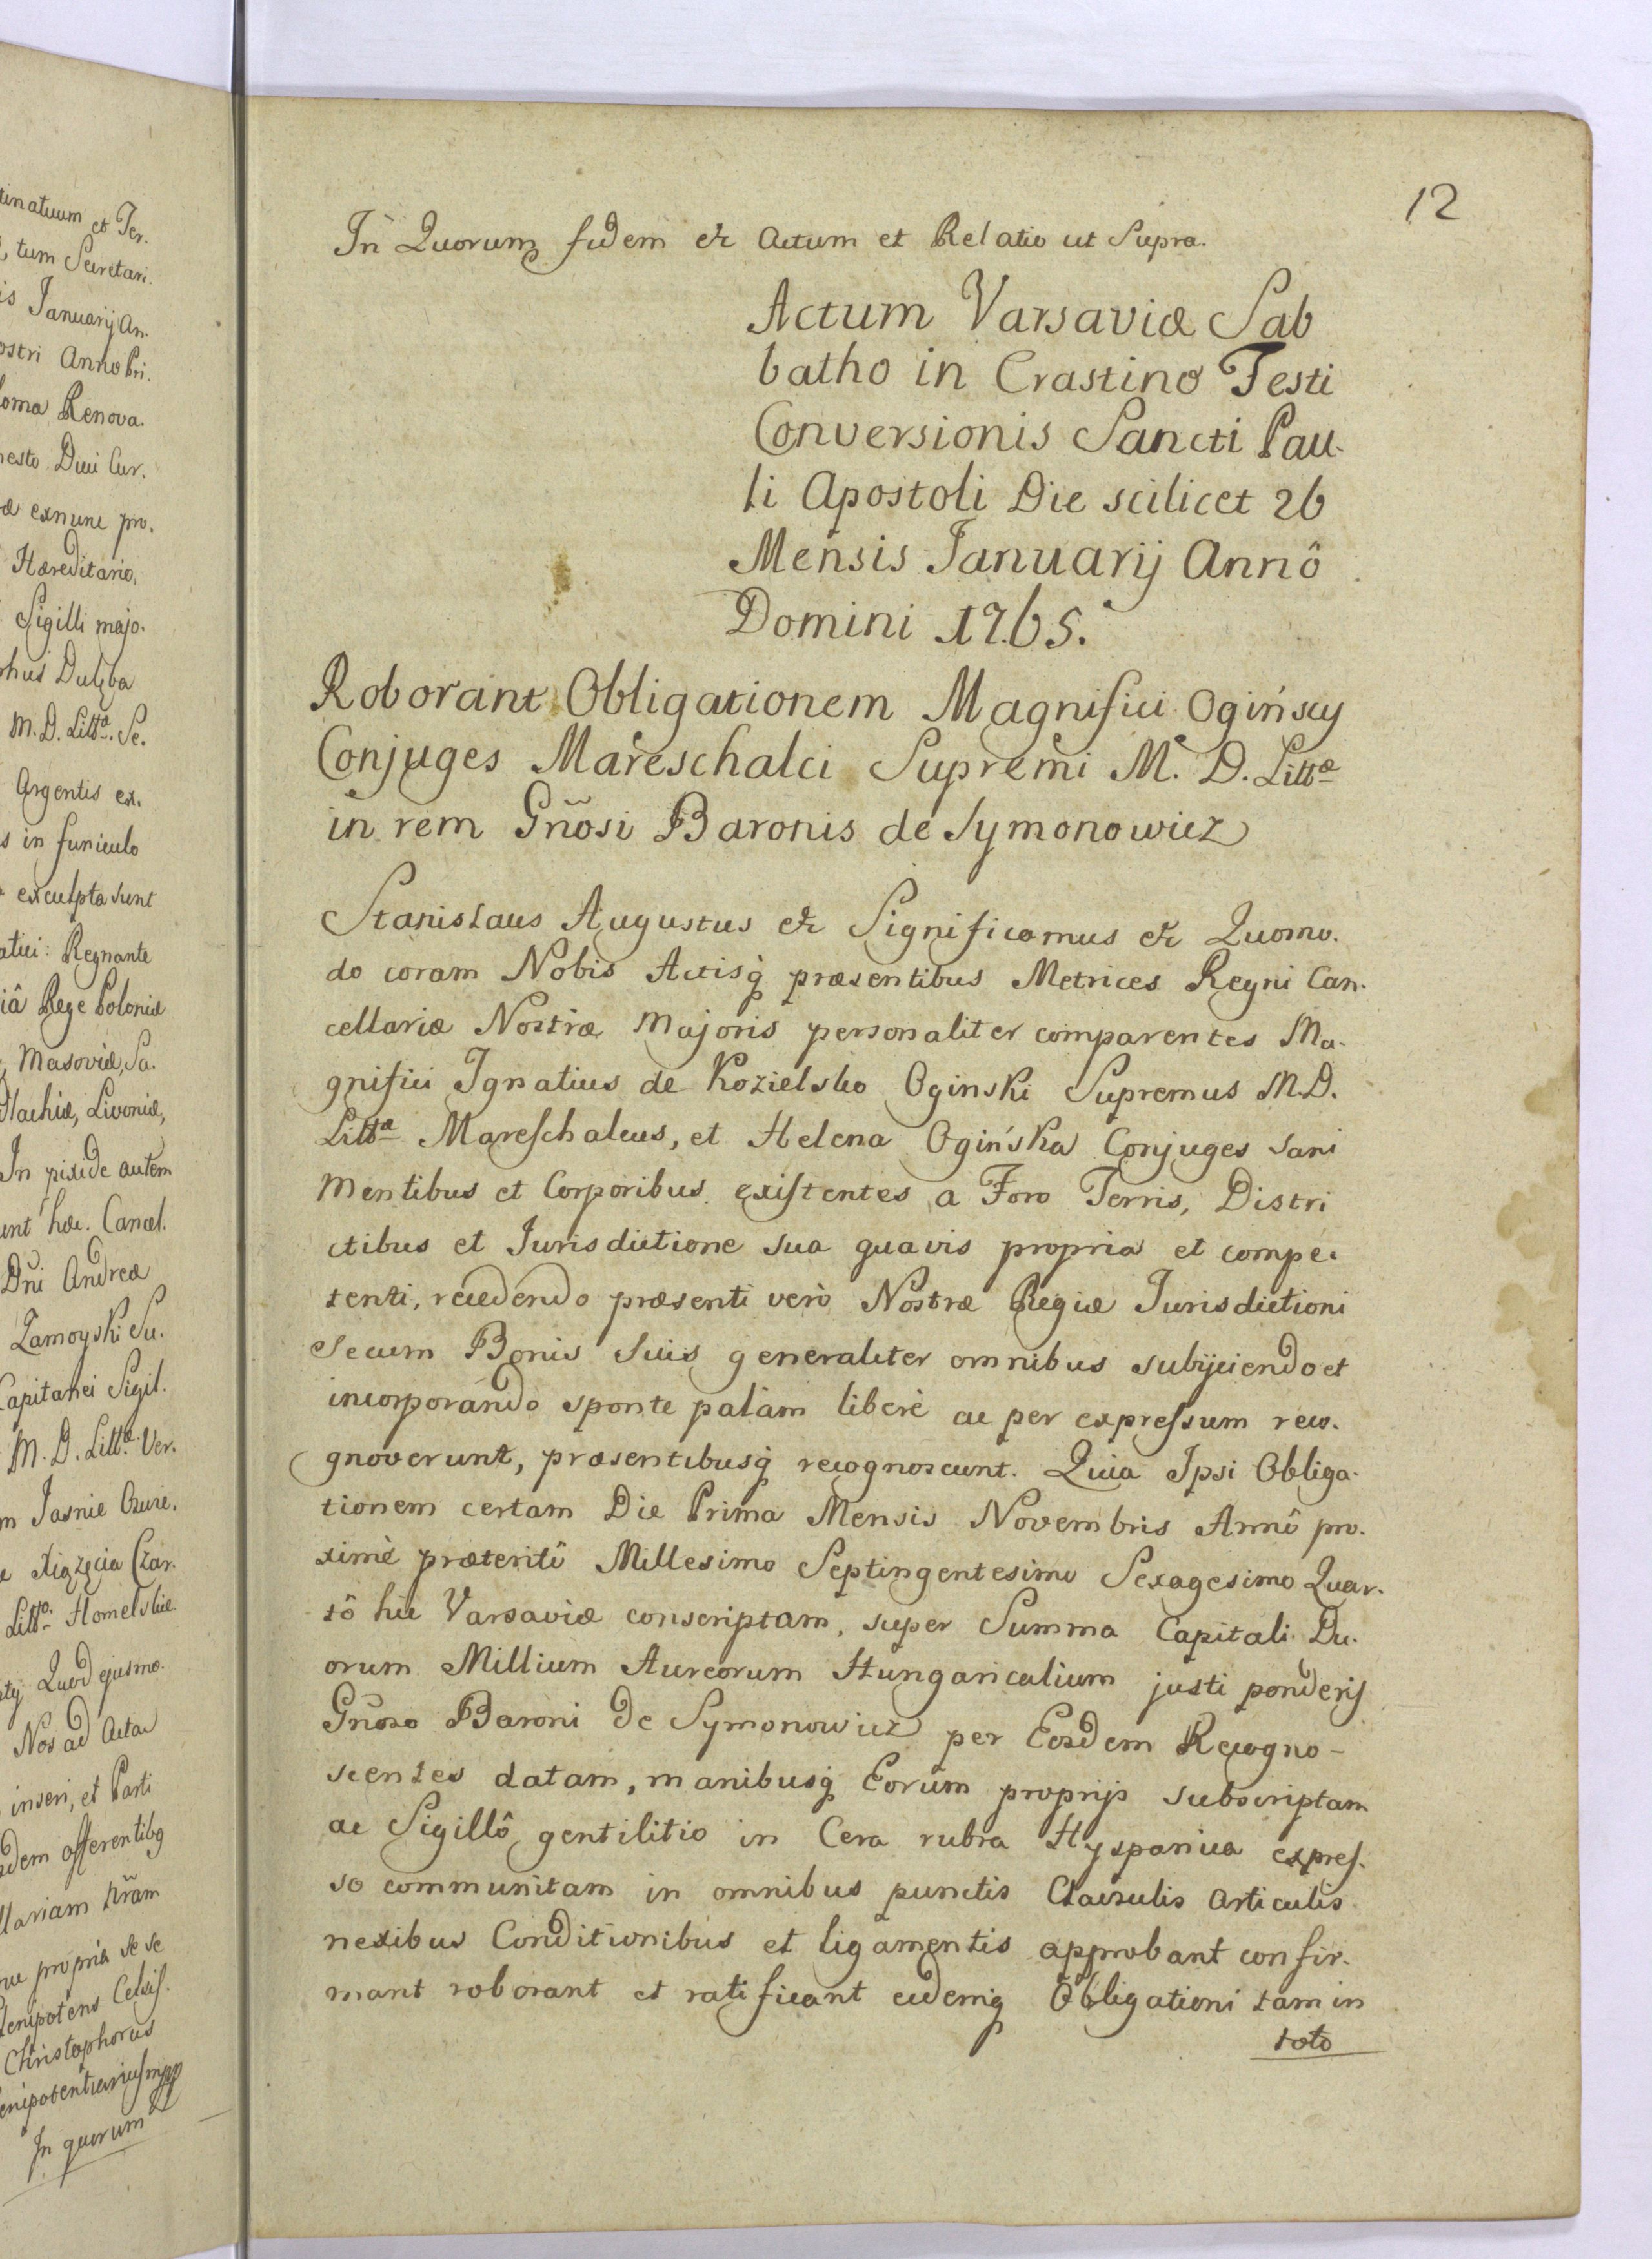 tinatuum et Ter.
, tum Secretari.
is Januarij An.
ostri Anno Pri.
loma Renova.
nesto Duci Cur.
æ exnunc pro.
Hæreditario,
Sigilli majo.
phus Dulęba
M. D. Littæ. Se.
Argentis ex.
s in funiculo
exculpta sunt
atici: Regnante
iâ Rege Poloniæ
, Masoviæ, Sa.
dlachiæ, Livoniæ,
In pixide autem
unt hæc. Cancel.
Dñi Andreæ
Zamoyski Su.
Capitanei Sigil.
M. D. Littæ. Ver.
m Jasnie Oswie.
Xiązęcia Czar.
Littæ. Homelskie
Quod ejusmo.
Nos ad Acta
inseri, et Parti
dem afferentibg
llariam Nr̃am
propria se se
lenipotens Celsis.
Christophorus
enipotentiarius mpp
In quorum
12
In Quorum fidem &c Actum et Relatio ut Supra.
Actum Varsaviæ Sab
batho in Crastino Festi
Conversionis Sancti Pau.
li Apostoli Die scilicet 26
Mensis Januarij Annô
Domini 1765.
Roborant Obligationem Magnifici Ogińscy
Conjuges Mareschalci Supremi M. D. Littæ
in rem Gñosi Baronis de Symonowicz
Stanislaus Augustus &c Significamus &c Quomo.
do coram Nobis Actisq́ præsentibus Metrices Regni Can.
cellariæ Nostræ Majoris personaliter comparentes Ma.
gnifici Ignatius de Kozielsko Oginski Supremus M.D.
Littæ Mareschalcus, et Helena Ogińska Conjuges sani
Mentibus et Corporibus existentes a Foro Terris, Distri
ctibus et Jurisdictione sua quavis propria et compe.
tenti, recedendo præsenti verò Nostræ Regiæ Jurisdictioni
secum Bonis suis generaliter omnibus subijciendo et
incorporando sponte palàm liberè ac per expressum reco.
gnoverunt, præsentibusq́ recognoscunt. Quia Ipsi Obliga.
tionem certam Die Prima Mensis Novembris Annô pro.
ximè præteritô Millesimo Septingentesimo Sexagesimo Quar.
tô hic Varsaviæ conscriptam, super Summa Capitali Du.
orum Millium Aureorum Hungaricalium justi ponderis
Gñoso Baroni de Symonowicz per Eosdem Recogno-
scentes datam, manibusq́ Eorum proprijs subscriptam
ac Sigillô gentilitio in Cera rubra Hyspanica expres.
so communitam in omnibus punctis Clausulis articulis
nexibus Conditionibus et ligamentis approbant confir.
mant roborant et ratificant eidemq́ Obligationi tam in
toto